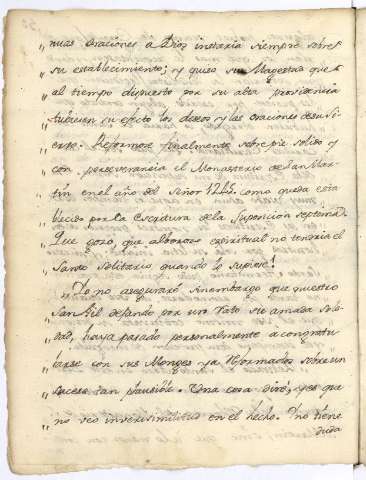 nuas oraciones a Dios instaria siempre sobre
su establecimiento; y quiso su Magestad que
al tiempo dispuesto por su alta providencia
tubiesen su efecto los deseos y las oraciones de su Si
ervo. Reformose finalmente sobre pie solido y
con perseverancia el Monasterio de San Mar-
tin en el año del Señor 1245. como queda esta
blecido por la Escritura de la Suposicion septima.
Que gozo, que alborozo espiritual no tendria el
Santo Solitario quando lo supiese!
Yo no aseguraré sinembargo que nuestro
San Gil dejando por un rato su amada Sole
dad, haya pasado personalmente a congratu
larse con sus Monges ya Reformados sobre un
suceso tan plausible. Una cosa diré, y es que
no veo inverisimilitud en el hecho. No tiene
duda